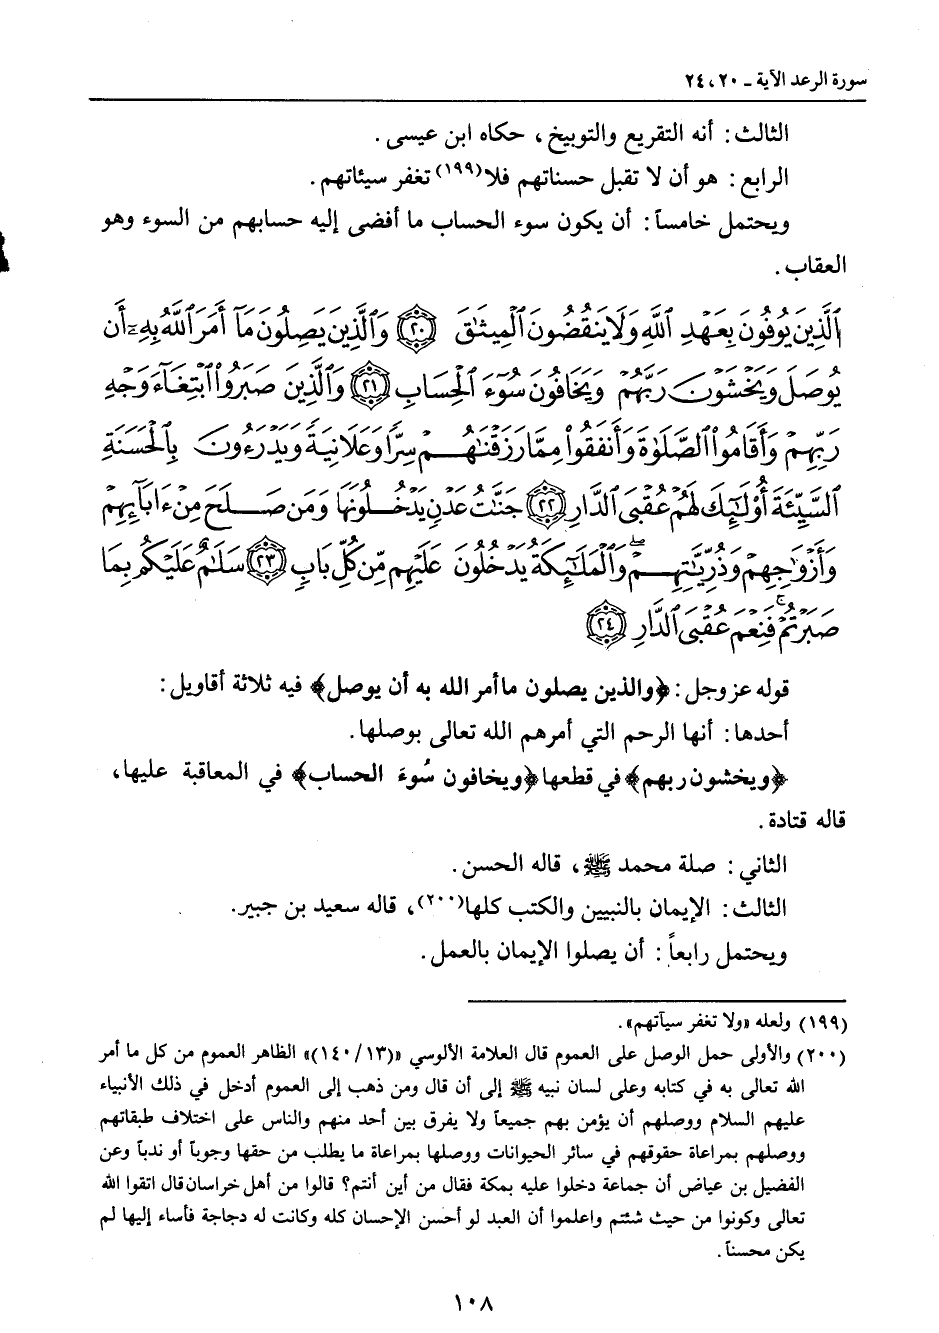 سورة الرعد الآية ـ ٢٠، ٢٤
الثالث: أنه التقريع والتوبيخ، حكاه ابن عيسى.
الرابع: هو أن لا تقبل حسناتهم فلا(١٩٩) تغفر سيئاتهم.
ويحتمل خامساً: أن يكون سوء الحساب ما أفضى إليه حسابهم من السوء وهو
العقاب.
ٱلَّذِينَ يُوفُونَ بِعَهْدِ ٱللَّهِ وَلَا يَنقُضُونَ ٱلْمِيثَٰقَ ٢٠ وَٱلَّذِينَ يَصِلُونَ مَآ أَمَرَ ٱللَّهُ بِهِۦٓ أَن
يُوصَلَ وَيَخْشَوْنَ رَبَّهُمْ وَيَخَافُونَ سُوٓءَ ٱلْحِسَابِ ٢١ وَٱلَّذِينَ صَبَرُوا۟ ٱبْتِغَآءَ وَجْهِ
رَبِّهِمْ وَأَقَامُوا۟ ٱلصَّلَوٰةَ وَأَنفَقُوا۟ مِمَّا رَزَقْنَٰهُمْ سِرًّا وَعَلَانِيَةً وَيَدْرَءُونَ بِٱلْحَسَنَةِ
ٱلسَّيِّئَةَ أُو۟لَٰٓئِكَ لَهُمْ عُقْبَى ٱلدَّارِ ٢٢ جَنَّٰتُ عَدْنٍ يَدْخُلُونَهَا وَمَن صَلَحَ مِنْ ءَابَآئِهِمْ
وَأَزْوَٰجِهِمْ وَذُرِّيَّٰتِهِمْ ۖ وَٱلْمَلَٰٓئِكَةُ يَدْخُلُونَ عَلَيْهِم مِّن كُلِّ بَابٍ ٢٣ سَلَٰمٌ عَلَيْكُم بِمَا
صَبَرْتُمْ ۚ فَنِعْمَ عُقْبَى ٱلدَّارِ ٢٤
قوله عز وجل: ﴿والذين يصلون ما أمر الله به أن يوصل﴾ فيه ثلاثة أقاويل:
أحدها: أنها الرحم التي أمرهم الله تعالى بوصلها.
﴿ويخشون ربهم﴾ في قطعها ﴿ويخافون سُوءَ الحساب﴾ في المعاقبة عليها،
قاله قتادة.
الثاني: صلة محمد ﷺ، قاله الحسن.
الثالث: الإيمان بالنبيين والكتب كلها(٢٠٠)، قاله سعيد بن جبير.
ويحتمل رابعاً: أن يصلوا الإيمان بالعمل.
(١٩٩) ولعله «ولا تغفر سيآتهم».
(٢٠٠) والأولى حمل الوصل على العموم قال العلامة الألوسي «(١٤٠/١٣)» الظاهر العموم من كل ما أمر
الله تعالى به في كتابه وعلى لسان نبيه ﷺ إلى أن قال ومن ذهب إلى العموم أدخل في ذلك الأنبياء
عليهم السلام ووصلهم أن يؤمن بهم جميعاً ولا يفرق بين أحد منهم والناس على اختلاف طبقاتهم
ووصلهم بمراعاة حقوقهم في سائر الحيوانات ووصلها بمراعاة ما يطلب من حقها وجوباً أو ندباً وعن
الفضيل بن عياض أن جماعة دخلوا عليه بمكة فقال من أين أنتم؟ قالوا من أهل خراسان قال اتقوا الله
تعالى وكونوا من حيث شئتم واعلموا أن العبد لو أحسن الإحسان كله وكانت له دجاجة فأساء إليها لم
يكن محسناً.
١٠٨